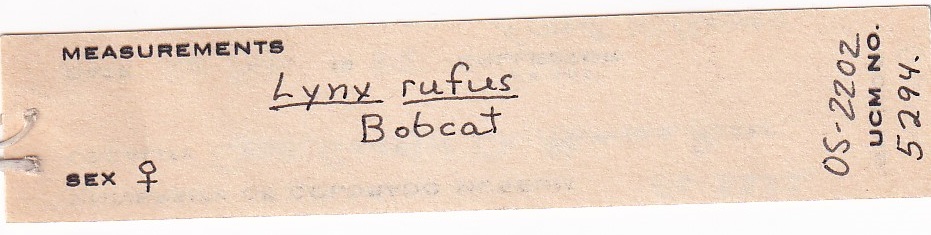 MEASUREMENTS
Lynx rufus
Bobcat
SEX ♀
OS-2202
UCM NO.
5294.